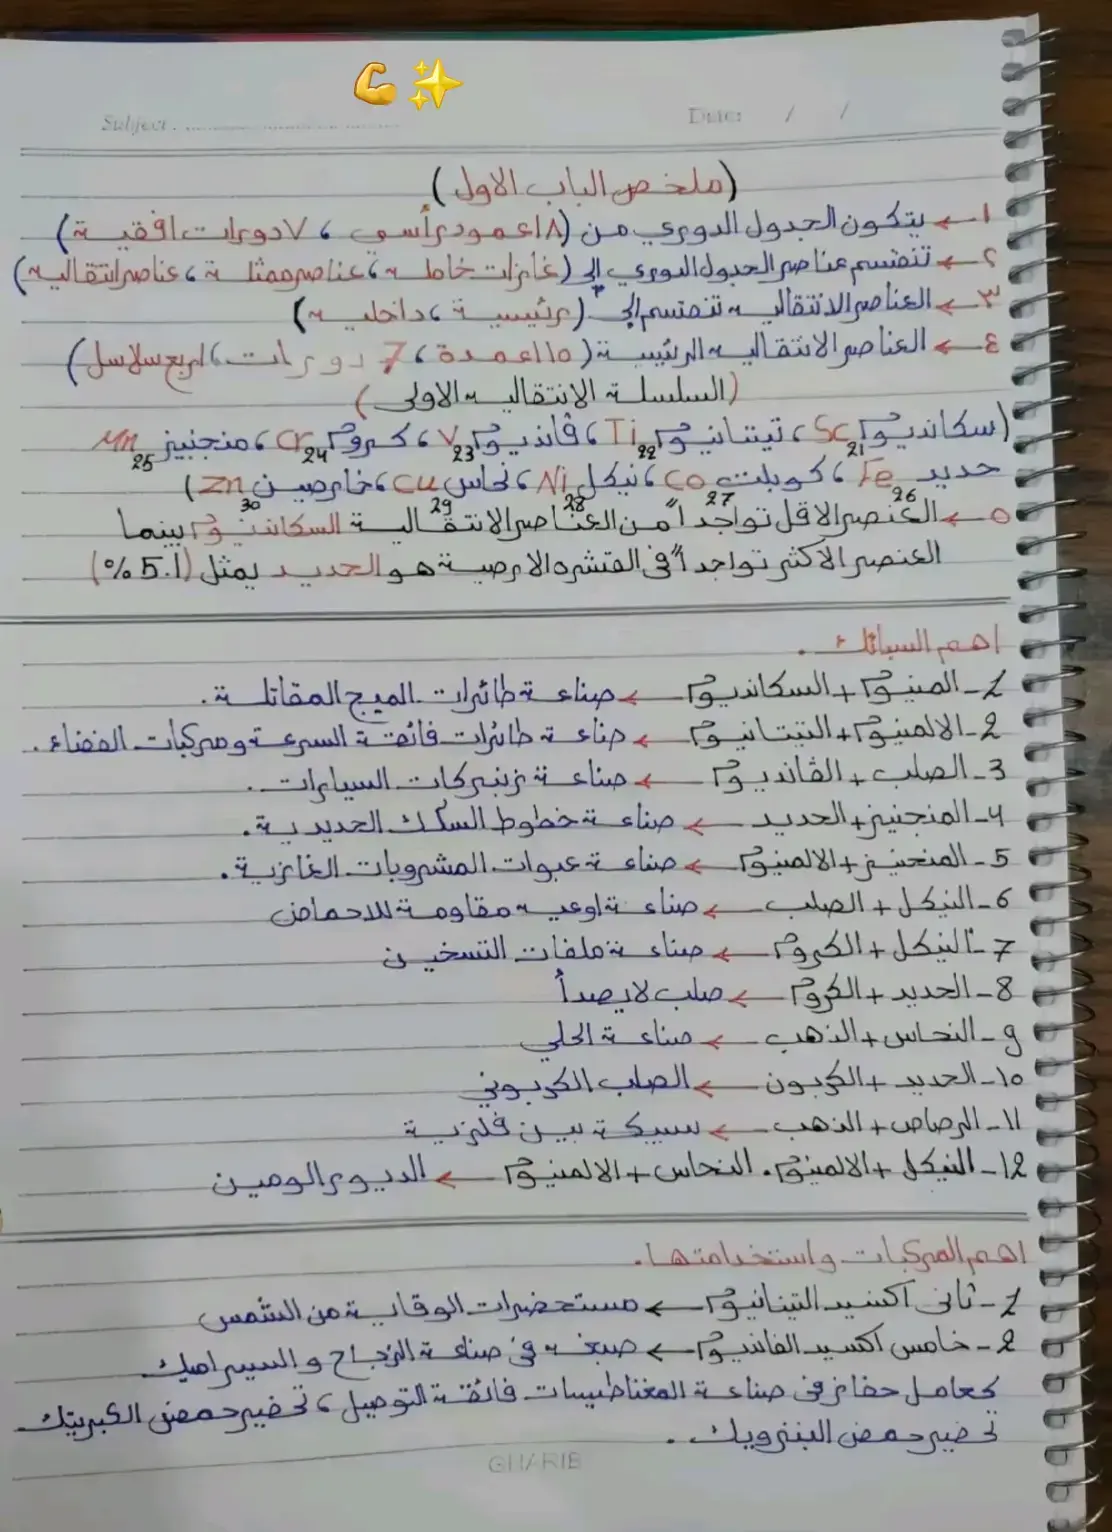 Subject. Date: / /
(ملخص الباب الاول)
١← يتكون الجدول الدوري من (١٨عمود رأسي ، ٧دورات افقية)
٢← تنقسم عناصر الجدول الدوري إلى (غازات خامله ، عناصر ممثلة ، عناصر انتقاليه)
٣← العناصر الانتقاليه تنقسم إلى (رئيسية ، داخليه)
٤← العناصر الانتقاليه الرئيسية (١٠اعمدة ، 7 دورات ، اربع سلاسل)
(السلسلة الانتقاليه الاولى)
(سكانديوم Sc 21 ، تيتانيوم Ti 22 ، ڤانديوم V 23 ، كروم Cr 24 ، منجنيز Mn 25
حديد Fe 26 ، كوبلت Co 27 ، نيكل Ni 28 ، نحاس Cu 29 ، خارصين Zn 30)
٥← العنصر الاقل تواجداً من العناصر الانتقالية السكانديوم بينما
العنصر الأكثر تواجداً في القشره الارضية هو الحديد يمثل (5.1 %)
اهم السبائك.
1- المنيوم + السكانديوم ← صناعة طائرات الميج المقاتلة.
2- الالمنيوم + التيتانيوم ← صناعة طائرات فائقة السرعة ومركبات الفضاء.
3- الصلب + الڤانديوم ← صناعة زنبركات السيارات.
4- المنجنيز + الحديد ← صناعة خطوط السكك الحديدية.
5- المنجنيز + الالمنيوم ← صناعة عبوات المشروبات الغازية.
6- النيكل + الصلب ← صناعة اوعيه مقاومة للاحماض
7- النيكل + الكروم ← صناعة ملفات التسخين
8- الحديد + الكروم ← صلب لا يصدأ
9- النحاس + الذهب ← صناعة الحلي
10- الحديد + الكربون ← الصلب الكربوني
11- الرصاص + الذهب ← سبيكة بين فلزية
12- النيكل + الالمنيوم. النحاس + الالمنيوم ← الديورالومين
اهم المركبات واستخدامتها.
1- ثاني اكسيد التيتانيوم ← مستحضرات الوقاية من الشمس
2- خامس اكسيد الفانديوم ← صبغه في صناعة الزجاج والسيراميك
كعامل حفاز في صناعة المغناطيسات فائقة التوصيل ، تحضير حمض الكبريتيك
تحضير حمض البنزويك.
GHARIB